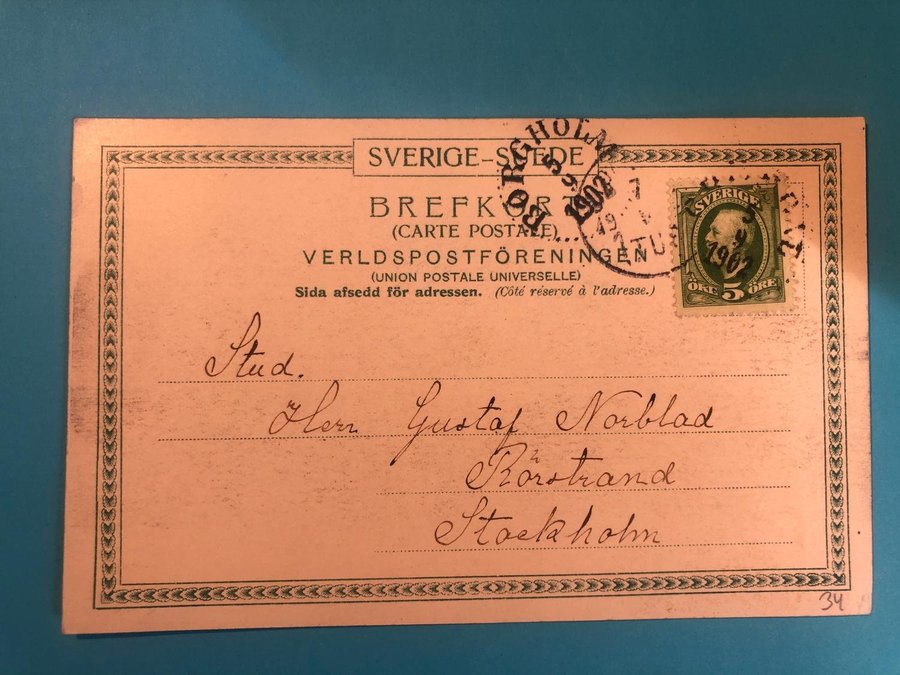 SVERIGE-SUEDE
BREFKORT
(CARTE POSTALE)
VERLDSPOSTFÖRENINGEN
(UNION POSTALE UNIVERSELLE)
Sida afsedd för adressen. (Côté réservé à l'adresse.)
BORGHOLM
1902
SVERIGE
1902
ÖRE 5 ÖRE
Stud.
Herr Gustaf Norblad
Rörstrand
Stockholm
34